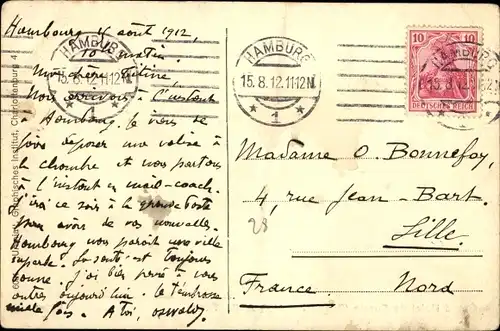 Hambourg 15 août 1912,
10 matin.
Ma chère Titine,
Nous arrivons à l'instant
à Hambourg. Je viens de
faire déposer une valise à
la chambre et nous partons
à l'instant en mail-coach.
J'irai ce soir à la grande Poste
pour avoir de vos nouvelles.
Hambourg nous paraît une ville
superbe. La santé est toujours
bonne. J'ai bien pensé à vous
autres aujourd'hui. Je t'embrasse
mille fois. A toi, Oswald
HAMBURG
15.8.12.11-12N
* 1 *
HAMBURG
15.8.12.11-12N
* 1 *
10 10
DEUTSCHES REICH
HAMBURG
Madame O. Bonnefoy,
4, rue Jean-Bart.
Lille.
France. Nord
28
Graphisches Institut, Charlottenburg 4.